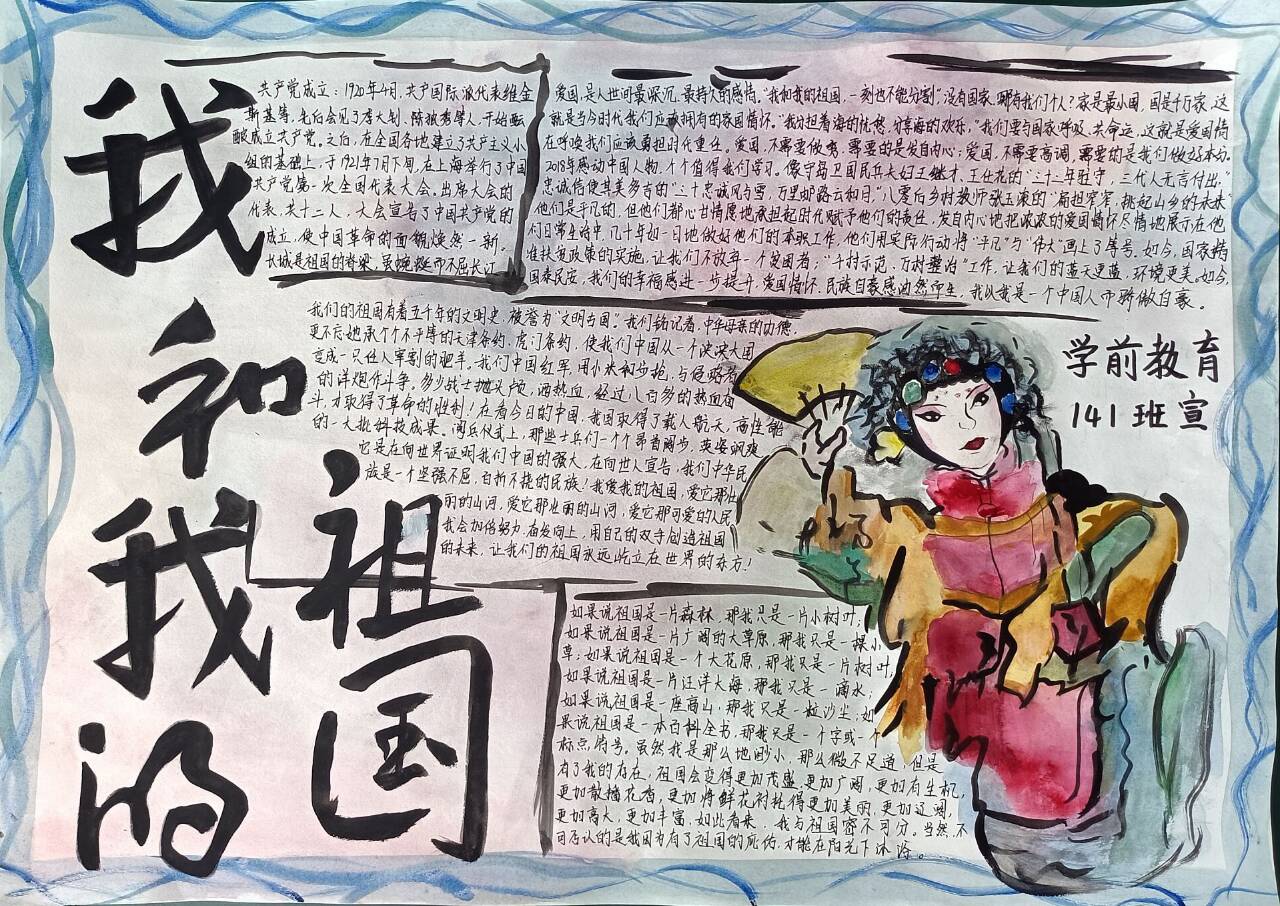 我和我的
祖国
共产党成立：1920年4月，共产国际派代表维金
斯基等，先后会见了李大钊、陈独秀等人，开始酝
酿成立共产党。之后，在全国各地建立了共产主义小
组的基础上，于1921年7月下旬，在上海举行了中国
共产党第一次全国代表大会。出席大会的
代表，共十二人，大会宣告了中国共产党的
成立，使中国革命的面貌焕然一新。
长城是祖国的脊梁，虽蜿蜒而不屈长江
爱国，是人世间最深沉、最持久的感情。“我和我的祖国，一刻也不能分割”没有国家，哪有我们个人？家是最小国，国是千万家，这
就是当今时代我们应该拥有的家国情怀。“我分担着海的忧愁，分享海的欢乐，”我们要与国家呼吸，共命运，这就是爱国情
在呼唤我们应该勇担时代重任。爱国，不需要做秀，需要的是发自内心；爱国，不需要高调，需要的是我们做好本分。
2018年感动中国人物，个个值得我们学习。像守岛卫国民兵夫妇王继才、王仕花的“三十二年驻守，三代人无言付出，”
忠诚信使其美多吉的“三十忠诚风与雪，万里邮路云和月，”八零后乡村教师张玉滚的“扁担窄窄，挑起山乡的未来
他们是平凡的，但他们都心甘情愿地承担起时代赋予他们的责任，发自内心地把浓浓的爱国情怀尽情地展示在他
们日常生活中，几十年如一日地做好他们的本职工作，他们用实际行动将“平凡”与“伟大”画上了等号。如今，国家精
准扶贫政策的实施，让我们不放弃一个贫困者；“千村示范、万村整治”工作，让我们的蓝天更蓝，环境更美。如今，
国泰民安，我们的幸福感进一步提升，爱国情怀、民族自豪感油然而生，我以我是一个中国人而骄傲自豪。
我们的祖国有着五千年的文明史，被誉为“文明古国”。我们铭记着，中华母亲的功德，
更不忘她承个个不平等的天津条约，虎门条约，使我们中国从一个泱泱大国
变成一只任人宰割的肥羊。我们中国红军，用小米和步枪，与侵略者
的洋炮作斗争。多少战士抛头颅，洒热血，经过八百多的热血奋
斗，才取得了革命的胜利！在看今日的中国，我国取得了载人航天，高性能
的一大批科技成果。阅兵仪式上，那些士兵们一个个昂首阔步，英姿飒爽
它是在向世界证明我们中国的强大，在向世人宣告，我们中华民
族是一个坚强不屈，百折不挠的民族！我爱我的祖国，爱它那壮
丽的山河，爱它那壮丽的山河，爱它那可爱的人民
我会加倍努力，奋发向上，用自己的双手创造祖国
的未来，让我们的祖国永远屹立在世界的东方！
学前教育
141班宣
如果说祖国是一片森林，那我只是一片小树叶；
如果说祖国是一片广阔的大草原，那我只是一棵小
草；如果说祖国是一个大花原，那我只是一片树叶，
如果说祖国是一片汪洋大海，那我只是一滴水；
如果说祖国是一座高山，那我只是一粒沙尘；如
果说祖国是一本百科全书，那我只是一个字或一个
标点符号。虽然我是那么地渺小，那么微不足道，但是
有了我的存在，祖国会变得更加茂盛，更加广阔，更加有生机，
更加散播花香，更加将鲜花衬托得更加美丽，更加辽阔，
更加高大，更加丰富，如此看来，我与祖国密不可分。当然，不
可否认的是我因为有了祖国的庇佑，才能在阳光下沐浴。